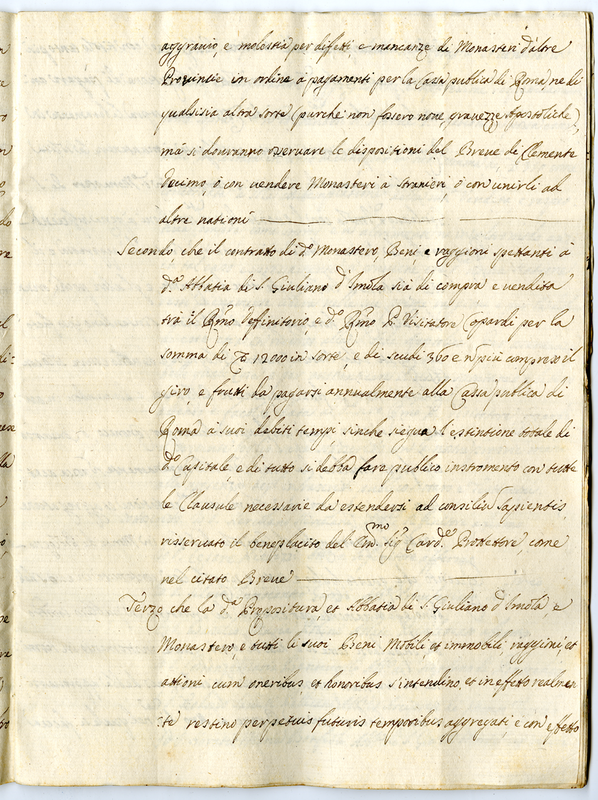 aggravio, e molestia per diffetti, e mancanze di Monasteri d'altre
Provintie in ordine à pagamenti per la Cassa publica di Roma, ne di
qualsisia altra sorte (purche non fossero nove gravezze Apostoliche),
mà si dovranno osservare le dispositioni del Breve di Clemente
Decimo, ò con vendere Monasteri à stranieri, ò con unirli ad
altre nationi
Secondo, che il contratto di d.º Monastero, Beni, e raggioni spettanti à
d.ª Abbatia di S. Giuliano d'Imola sia di compra e vendita
trà il Rmo Deffinitorio, e d.º Rmo P. Visitatore Leopardi per la
somma di 12000 in sorte, e di scudi 360 e n più compreso il
giro, e frutti da pagarsi annualmente alla Cassa publica di
Roma à suoi debiti tempi sinche siegua l'estintione totale di
d.º Capitale, e di tutto si debba fare publico instromento con tutte
le Clausule necessarie da estendersi ad consiliu Sapientis,
risservato il beneplacito del Em.mo Sig Card.e Prottettore, come
nel citato Breve
Terzo che la d.ª Propositura, et Abbatia di S. Giuliano d'Imola, e
Monastero, e tutti li suoi Beni Mobili, et immobili, raggioni et
attioni cum oneribus, et honoribus s'intendino, et in effetto realmen
te restino perpetuis futuris temporibus aggregati, e con effetto